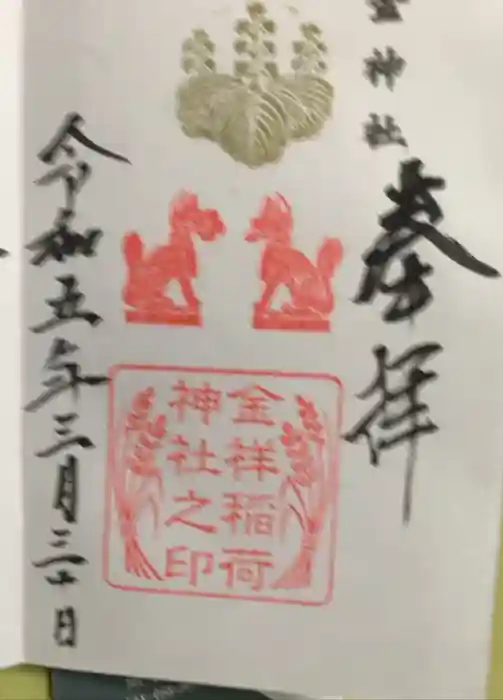 金神社
奉拝
金祥稲荷
神社之印
令和五年三月三十日